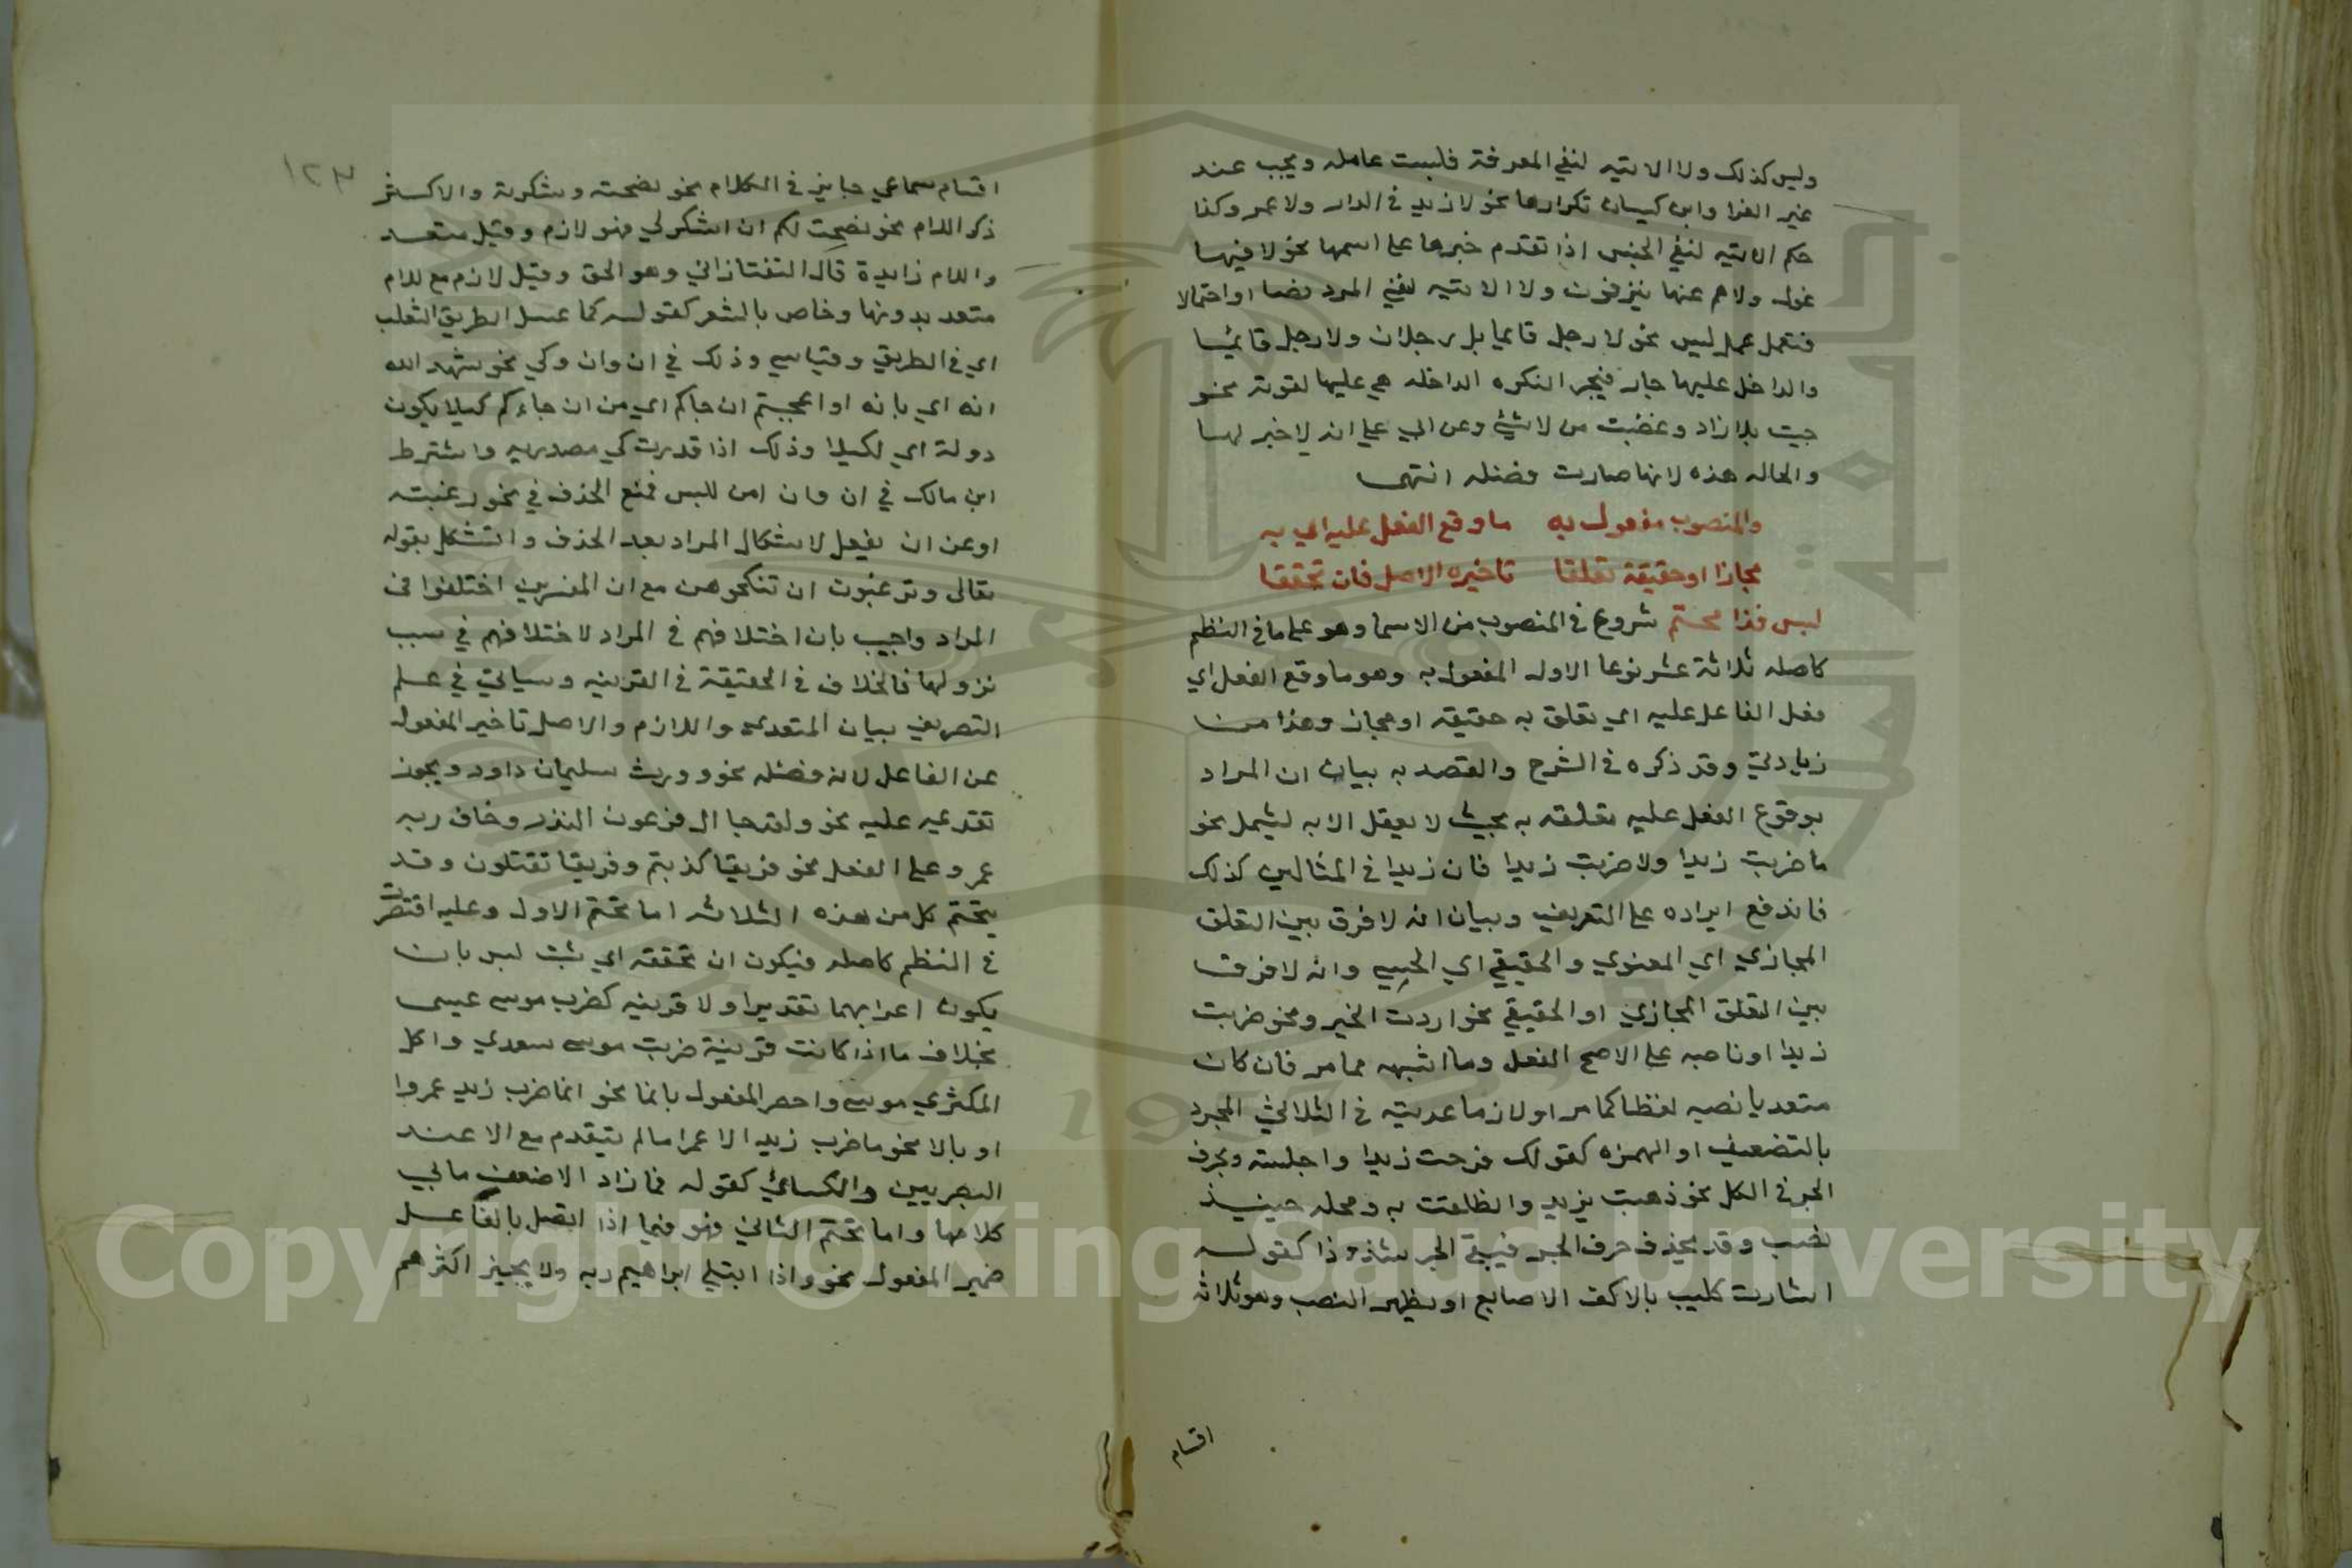 وليس كذلك ولا الاتيه لنفي المعرفة فليست عامله ويجب عند
غير الفرا وابن كيسان تكرارها نحو لا زيد في الدار ولا عمرو كذا
حكم الاتيه لنفي الجنس اذا تقدم خبرها على اسمها نحو لا فيها
غول ولا هم عنها ينزفون ولا الاتيه لنفي المرد نصا او احتمالا
فتعمل عمل ليس نحو لا رجل قايما بل رجلان ولا رجل قائما
والداخل عليها جار فيجر النكره الداخله هي عليها لقوته نحو
جيت بلا زاد وغضبت من لا شيئ وعن الي علي انه لا خبر لها
والحاله هذه لانها صارت فضله انتهى
والمنصوب مفعول به ما وقع الفعل عليه اي به
مجازا او حقيقة تعلقا تاخيره الاصل فان تحققا
لبس فذا محتم شروع في المنصوب من الاسما وهو على ما في النظم
كاصله ثلاثة عشر نوعا الاول المفعول به وهو ما وقع الفعل اي
فعل الفاعل عليه اي تعلق به حقيقه او مجاز وهذا من
زيادتي وقد ذكره في الشرح والقصد به بيان ان المراد
بوقوع الفعل عليه تعلقه به بحيث لا يعقل الا به ليشمل نحو
ما ضربت زيدا ولا ضربت زيدا فان زيدا في المثالين كذلك
فاندفع ايراده على التعريف وبيان انه لا فرق بين التعلق
المجازي اي المعنوي والحقيقي اي الحسي وانه لا فرق
بين التعلق المجازي او الحقيقي نحو اردت الخير ونحو ضربت
زيدا او ناصبه على الاصح الفعل وما اشبهه مما مر فان كان
متعديا نصبه لفظا كما مر او لازما عديته في الثلاثي المجرد
بالتضعيف او الهمزه كقولك فرحت زيدا واجلسته وبحرف
الجر في الكل نحو ذهبت بزيد وانطلقت به ومحله حينيذ
نصب وقد يحذف حرف الجر فيبقى الجر شذوذا كقوله
اشارت كليب بالاكف الاصابع او يظهر النصب وهو ثلاثه
اقسام
١٢٣
اقسام سماعي جايز في الكلام نحو نصحته وشكرته والاكثر
ذكر اللام نحو نصحت لكم ان اشكر لي فهو لازم وقيل متعد
واللام زايدة قال التفتازاني وهو الحق وقيل لازم مع للام
متعد بدونها وخاص بالشعر كقوله كما عسل الطريق الثعلب
اي في الطريق وقياسي وذلك في ان وان وكي نحو شهد الله
انه اي بانه او اعجبتم ان جاكم اي من ان جاءكم كيلا يكون
دولة اي لكيلا وذلك اذا قدرت كي مصدريه واشترط
ابن مالك في ان وان امن للبس فمنع الحذف في نحو رغبت
او عن ان يفعل لاشكال المراد بعد الحذف واستشكل بقوله
تعالى وترغبون ان تنكحوهن مع ان المفسرين اختلفوا في
المراد واجيب بان اختلافهم في المراد لاختلافهم في سبب
نزولها فالخلاف في الحقيقة في القرينه وسياتي في علم
التصريف بيان المتعدي واللازم والاصل تاخير المفعول
عن الفاعل لانه فضله نحو وورث سليمان داود ويجوز
تقديمه عليه نحو ولقد جا ال فرعون النذر وخاف ربه
عمر وعلى الفعل نحو فريقا كذبتم وفريقا تقتلون وقد
يتحتم كل من هذه الثلاثه اما تحتم الاول وعليه اقتصرت
في النظم كاصله فيكون ان تحققه اي ثبت لبس بان
يكون اعرابهما تقديرا ولا قرينه كضرب موسى عيسى
بخلاف ما اذا كانت قرينة ضربت موسى سعدي واكل
الكمثري موسى واحصر المفعول بانما نحو انما ضرب زيد عمروا
او بالا نحو ما ضرب زيد الا عمرا ما لم يتقدم مع الا عند
البصريين والكسائي كقوله فما زاد الا ضعف ما بي
كلامها واما تحتم الثاني فهو فيما اذا اتصل بالفاعل
ضمير المفعول نحو واذا ابتلي ابراهيم ربه ولا يجيز اكثرهم
Copyright © King Saud University
1957